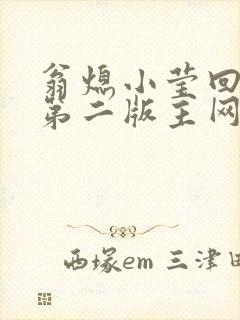 翁熄小莹回
第二版主网
西塚em 三津田